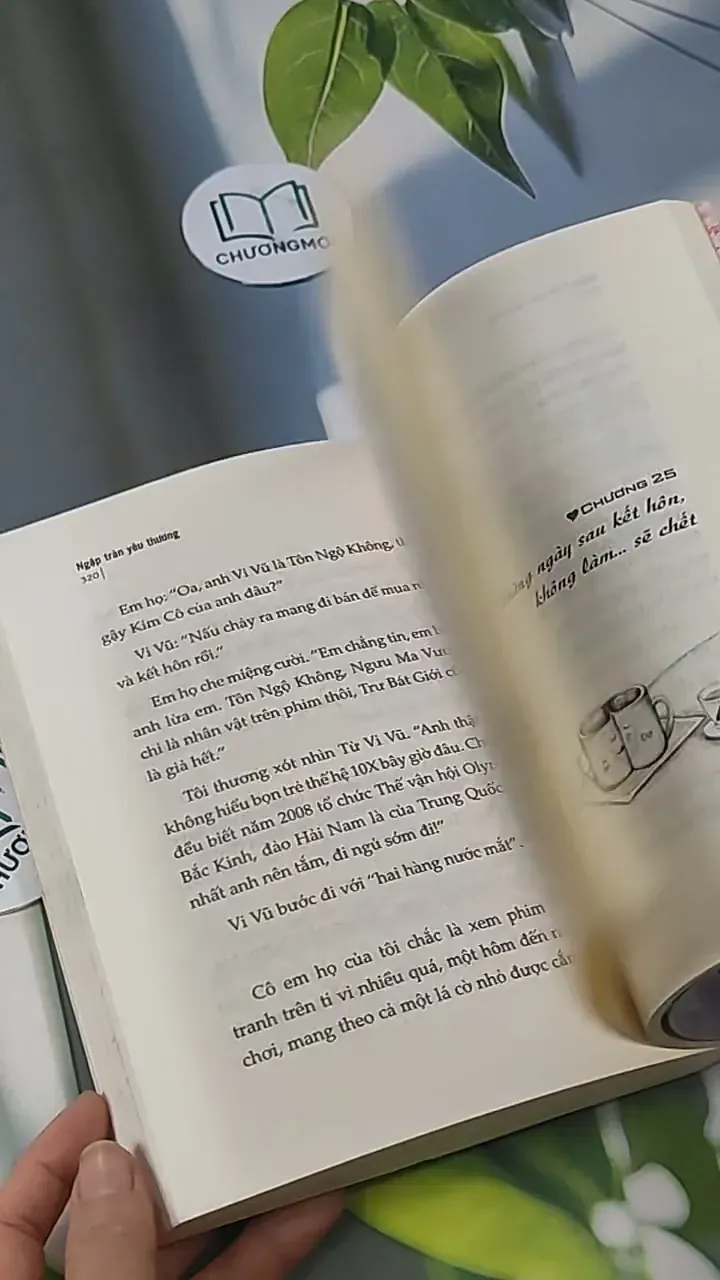 CHƯƠNGMỚ
Ngập tràn yêu thương
320|
Em họ: “Oa, anh Vi Vũ là Tôn Ngộ Không,
gậy Kim Cô của anh đâu?”
Vi Vũ: “Nấu chảy ra mang đi bán để mua
và kết hôn rồi.”
Em họ che miệng cười. “Em chẳng tin, em
anh lừa em. Tôn Ngộ Không, Ngưu Ma Vư
chỉ là nhân vật trên phim thôi, Trư Bát Giới
là giả hết.”
Tôi thương xót nhìn Từ Vi Vũ. “Anh thậ
không hiểu bọn trẻ thế hệ 10X bây giờ đâu. Ch
đều biết năm 2008 tổ chức Thế vận hội Oly
Bắc Kinh, đảo Hải Nam là của Trung Quốc
nhất anh nên tắm, đi ngủ sớm đi!”
Vi Vũ bước đi với “hai hàng nước mắt”.
Cô em họ của tôi chắc là xem phim
tranh trên ti vi nhiều quá, một hôm đến
chơi, mang theo cả một lá cờ nhỏ được
CHƯƠNG 25
ngày sau kết hôn,
không làm... sẽ chết